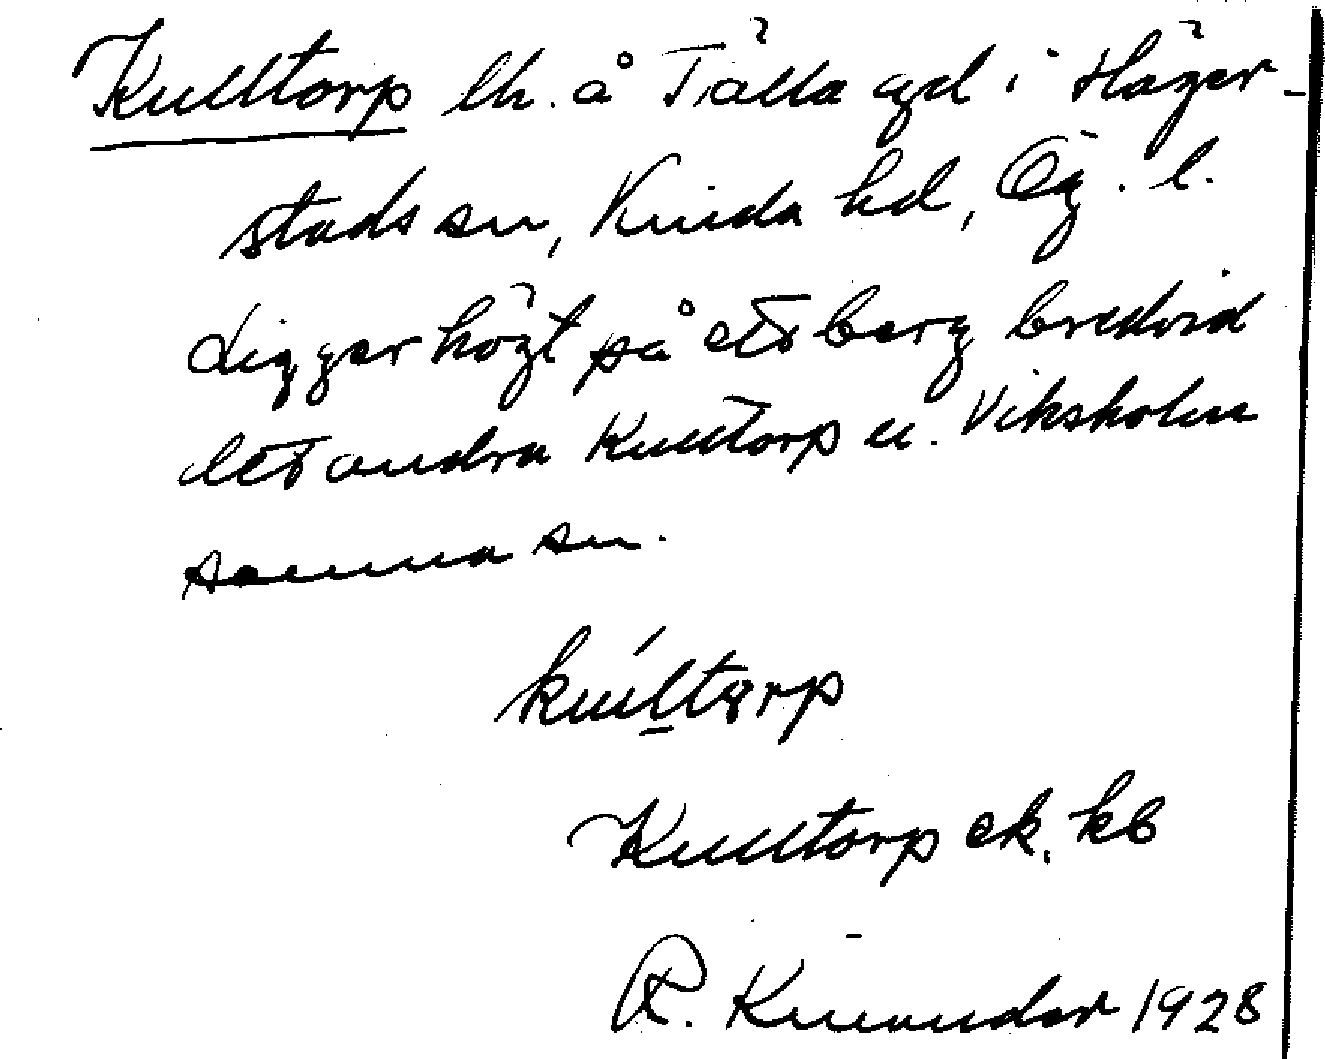 Kulltorp lh. å Tjälla gd i Häger-
stads sn, Kinda hd, Ög. l.
Ligger högt på ett berg bredvid
det andra Kulltorp u. Viksholm
samma sn.
kúltɵrp
Kulltorp ek. kb
R. Kinander 1928